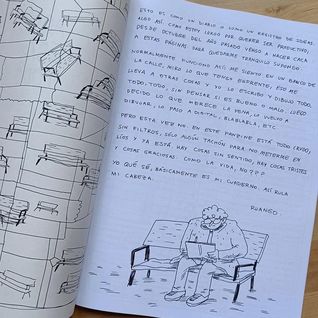 ESTO ES COMO UN DIARIO O COMO UN REGISTRO DE IDEAS.
ALGO ASÍ. COMO ESTOY LERDO POR QUERER SER PRODUCTIVO,
DESDE OCTUBRE DEL AÑO PASADO VENGO A HACER CACA
A ESTAS PÁGINAS PARA QUEDARME TRANQUILO SUPONGO.
NORMALMENTE FUNCIONO ASÍ: ME SIENTO EN UN BANCO DE
LA CALLE, MIRO LO QUE TENGO ENFRENTE, ESO ME
LLEVA A OTRAS COSAS Y YO LO ESCRIBO Y DIBUJO TODO,
TODO, TODO, SIN PENSAR SI ES BUENO O MALO. LUEGO
DECIDO LO QUE MERECE LA PENA, LO VUELVO A
DIBUJAR, LO PASO A DIGITAL, BLABLABLÁ, ETC.
PERO ESTA VEZ NO. EN ESTE FANZINE ESTÁ TODO CRUDO,
SIN FILTROS, SÓLO ALGÚN TACHÓN PARA NO METERME EN
LÍOS Y YA ESTÁ. HAY COSAS SIN SENTIDO, HAY COSAS TRISTES
Y COSAS GRACIOSAS. COMO LA VIDA, NO???
YO QUÉ SÉ, BÁSICAMENTE ES MI CUADERNO. ASÍ RULA
MI CABEZA.
RUANGO